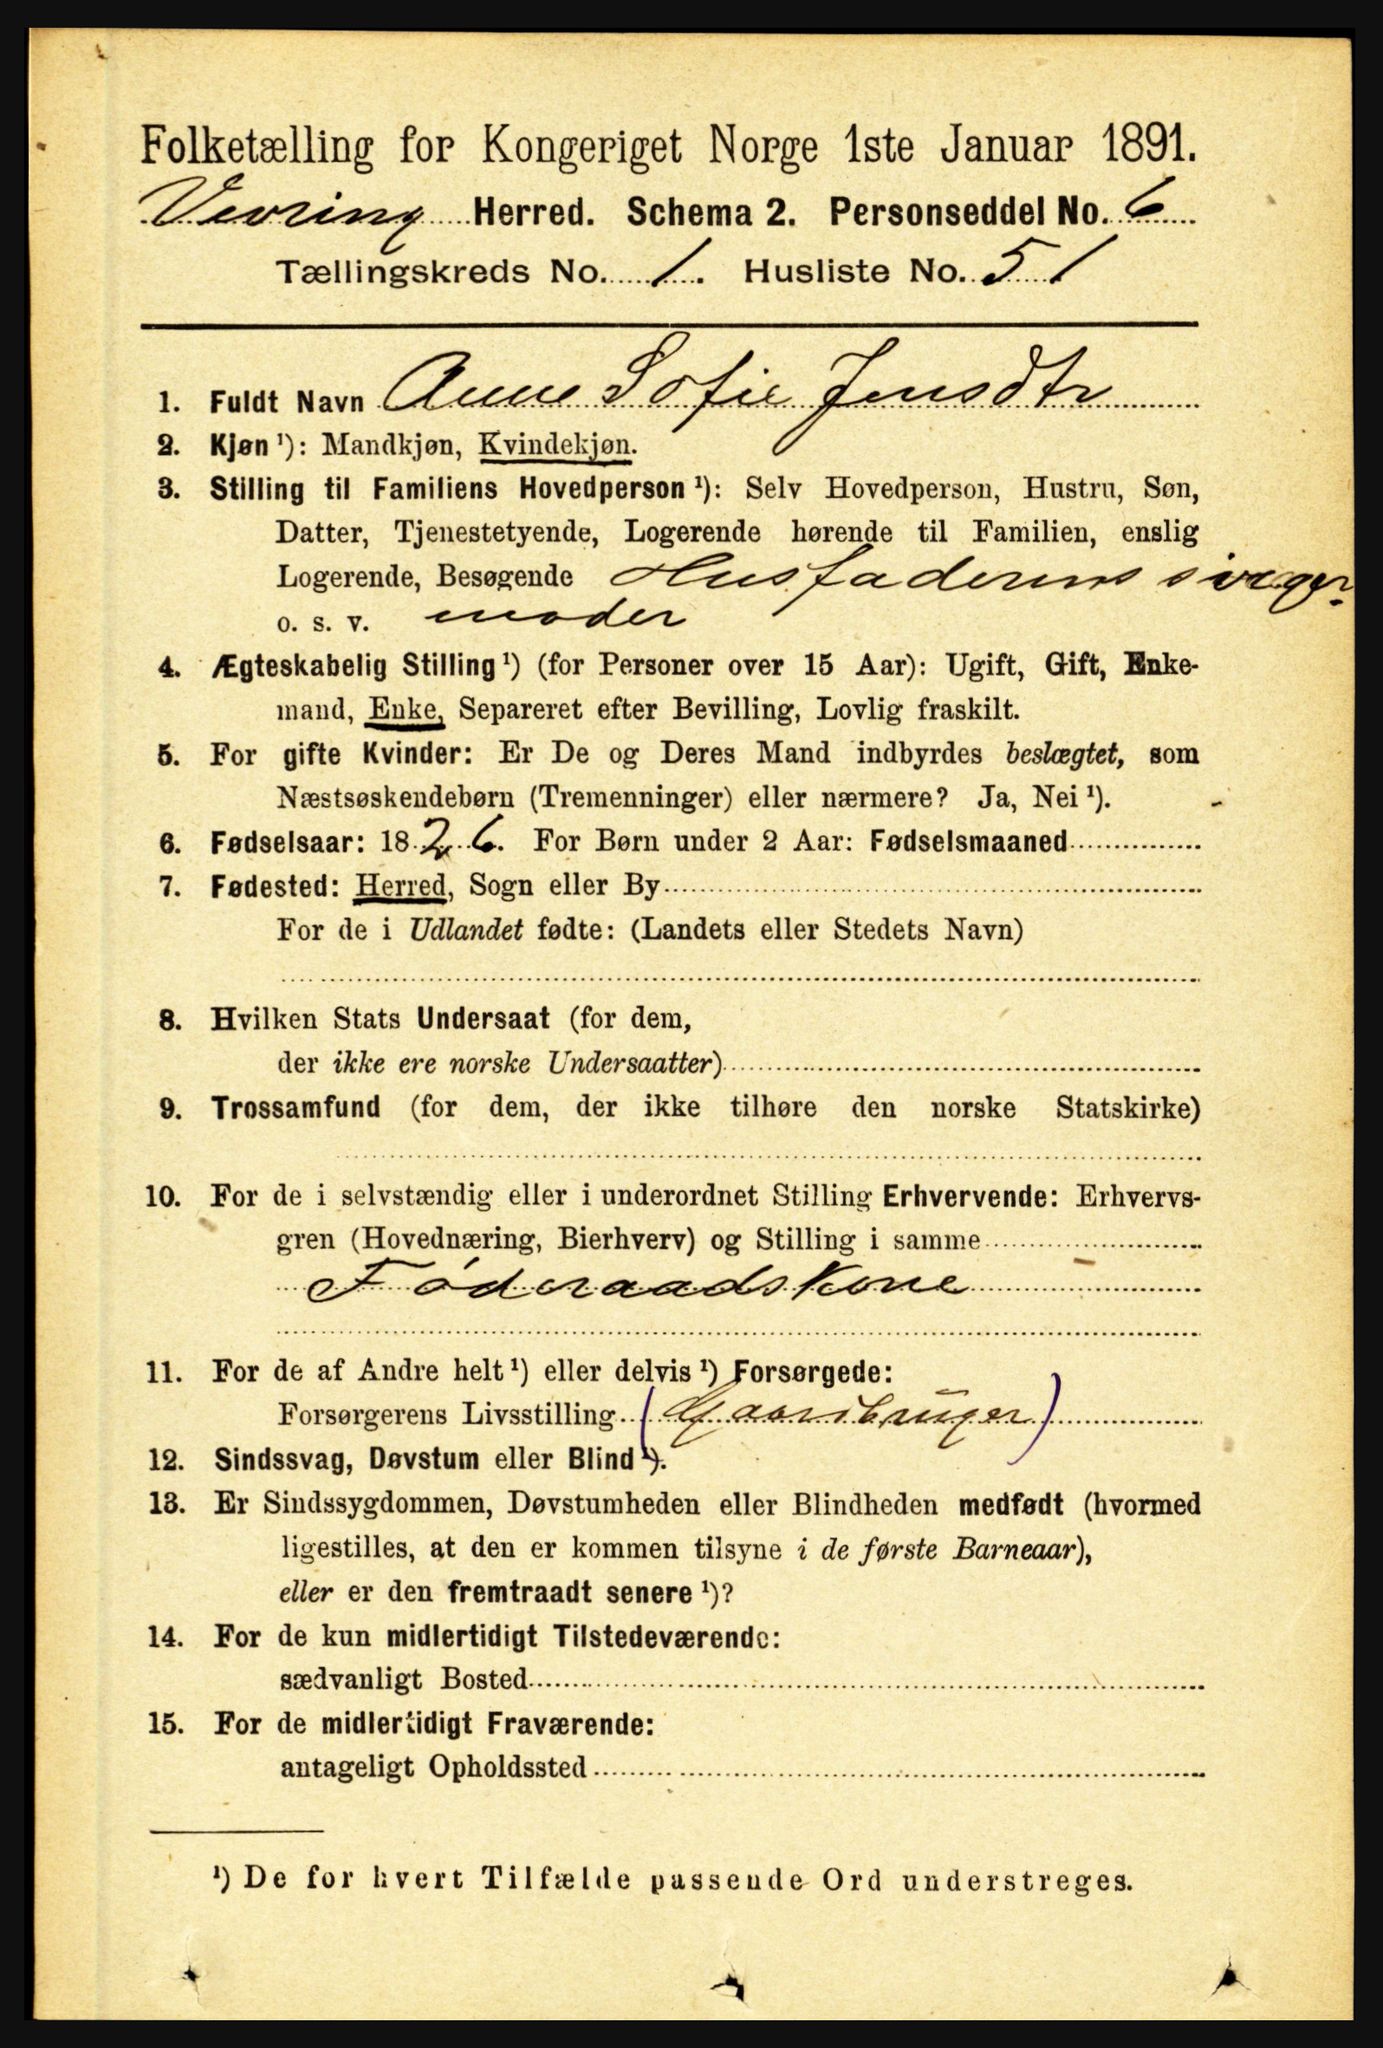 Folketælling for Kongeriget Norge 1ste Januar 1891.
Vevring Herred. Schema 2. Personseddel No. 6
Tællingskreds No. 1. Husliste No. 51
1. Fuldt Navn Anne Sofie Jensdtr
2. Kjøn ¹): Mandkjøn, Kvindekjøn.
3. Stilling til Familiens Hovedperson ¹): Selv Hovedperson, Hustru, Søn,
Datter, Tjenestetyende, Logerende hørende til Familien, enslig
Logerende, Besøgende Husfaderens sviger-
o. s. v. moder
4. Ægteskabelig Stilling ¹) (for Personer over 15 Aar): Ugift, Gift, Enke-
mand, Enke, Separeret efter Bevilling, Lovlig fraskilt.
5. For gifte Kvinder: Er De og Deres Mand indbyrdes beslægtet, som
Næstsøskendebørn (Tremenninger) eller nærmere? Ja, Nei ¹).
6. Fødselsaar: 1826. For Børn under 2 Aar: Fødselsmaaned
7. Fødested: Herred, Sogn eller By
For de i Udlandet fødte: (Landets eller Stedets Navn)
8. Hvilken Stats Undersaat (for dem,
der ikke ere norske Undersaatter)
9. Trossamfund (for dem, der ikke tilhøre den norske Statskirke)
10. For de i selvstændig eller i underordnet Stilling Erhvervende: Erhvervs-
gren (Hovednæring, Bierhverv) og Stilling i samme
Føderaadskone
11. For de af Andre helt ¹) eller delvis ¹) Forsørgede:
Forsørgerens Livsstilling (Gaardbruger)
12. Sindssvag, Døvstum eller Blind ¹).
13. Er Sindssygdommen, Døvstumheden eller Blindheden medfødt (hvormed
ligestilles, at den er kommen tilsyne i de første Barneaar),
eller er den fremtraadt senere ¹)?
14. For de kun midlertidigt Tilstedeværende:
sædvanligt Bosted
15. For de midlertidigt Fraværende:
antageligt Opholdssted
¹) De for hvert Tilfælde passende Ord understreges.